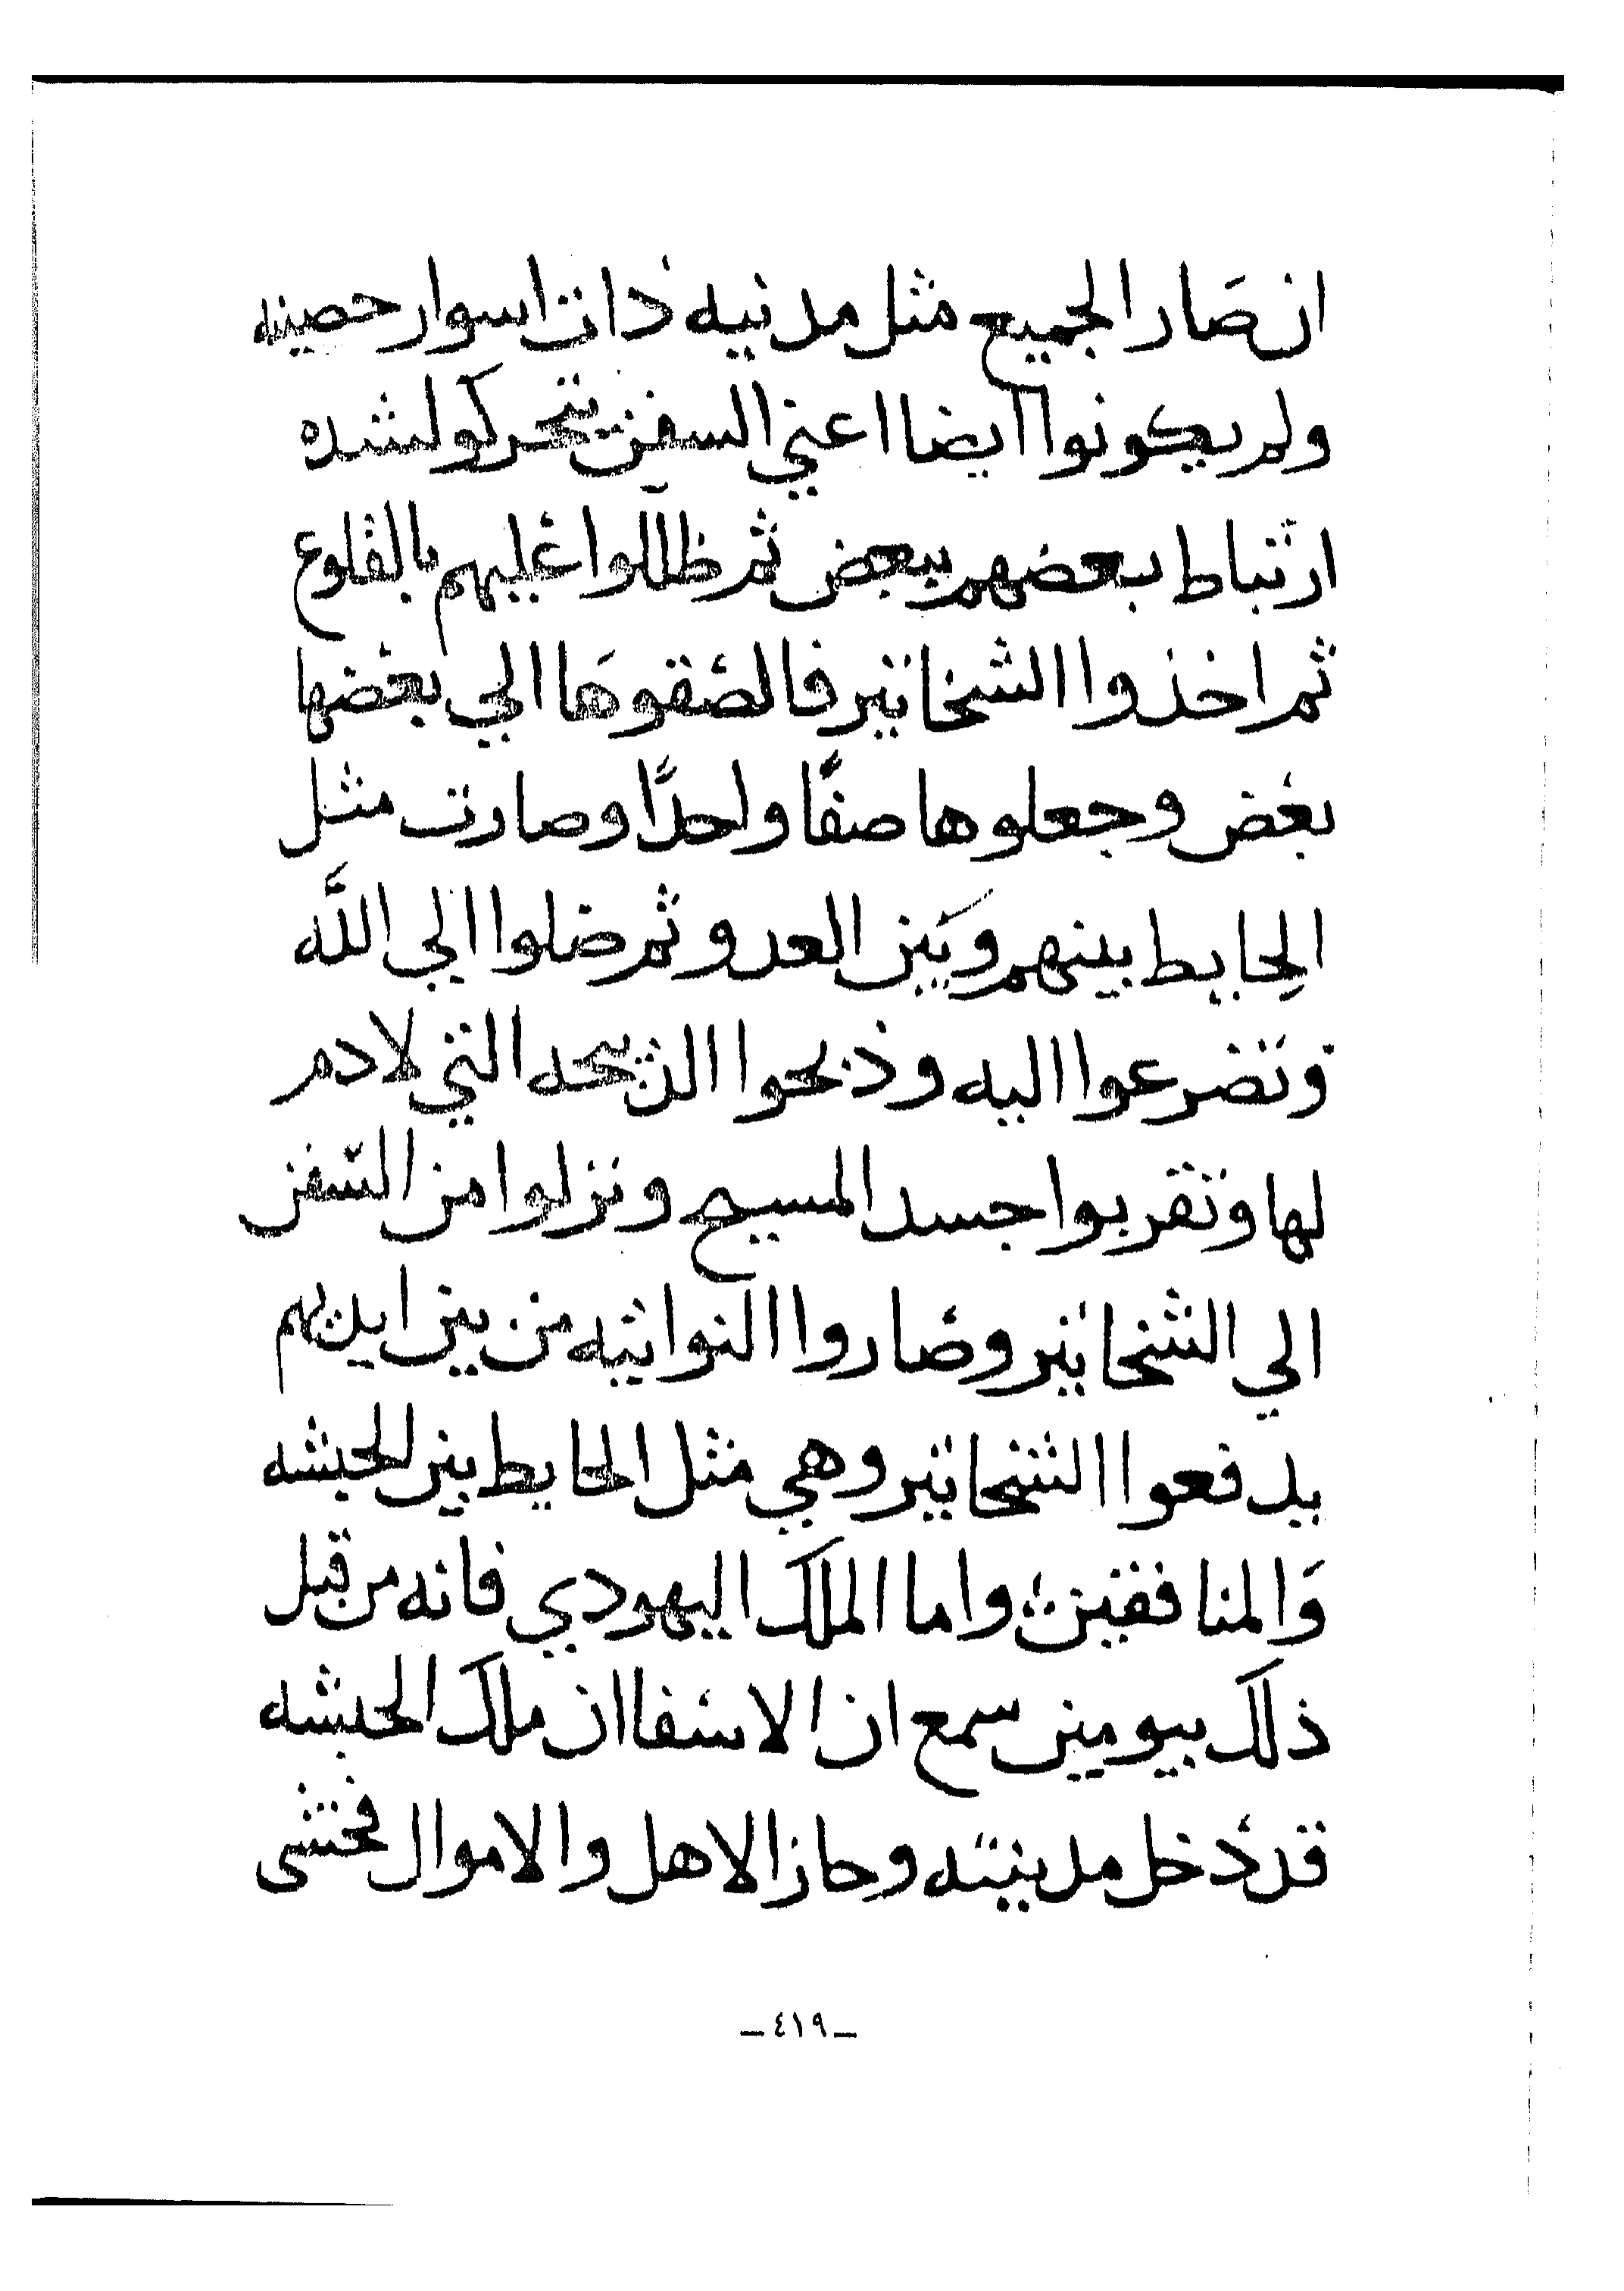 ان صَار الجميع مثل مدنيه ذات اسوار حصينه
ولم يكونوا ايضا اعني السفن يتحركو لشده
ارتباط بعضهم ببعض ثم ظللوا عليهم بالقلوع
ثم اخذوا الشخاتير فالصقوهَا الي بعضها
بعض وجعلوها صفًا واحدًا وصارت مثل
الحايط بينهم وبَين العدو ثم ضلوا الي اللَّه
وتضرعوا اليه وذبحوا الذبيحه التي لا دم
لها وتقربوا جسد المسيح ونزلوا من السّفن
الي الشخاتير وصاروا النواتيه من بين ايديهم
يدفعوا الشخاتير وهي مثل الحايط بين الحبشه
وَالمنافقين؛ واما الملك اليهودي فانه من قبل
ذلك بيومين سمع ان الاسفاان ملك الحبشه
قد دخل مدينته وحاز الاهل والاموال فخشى
_٤١٩_